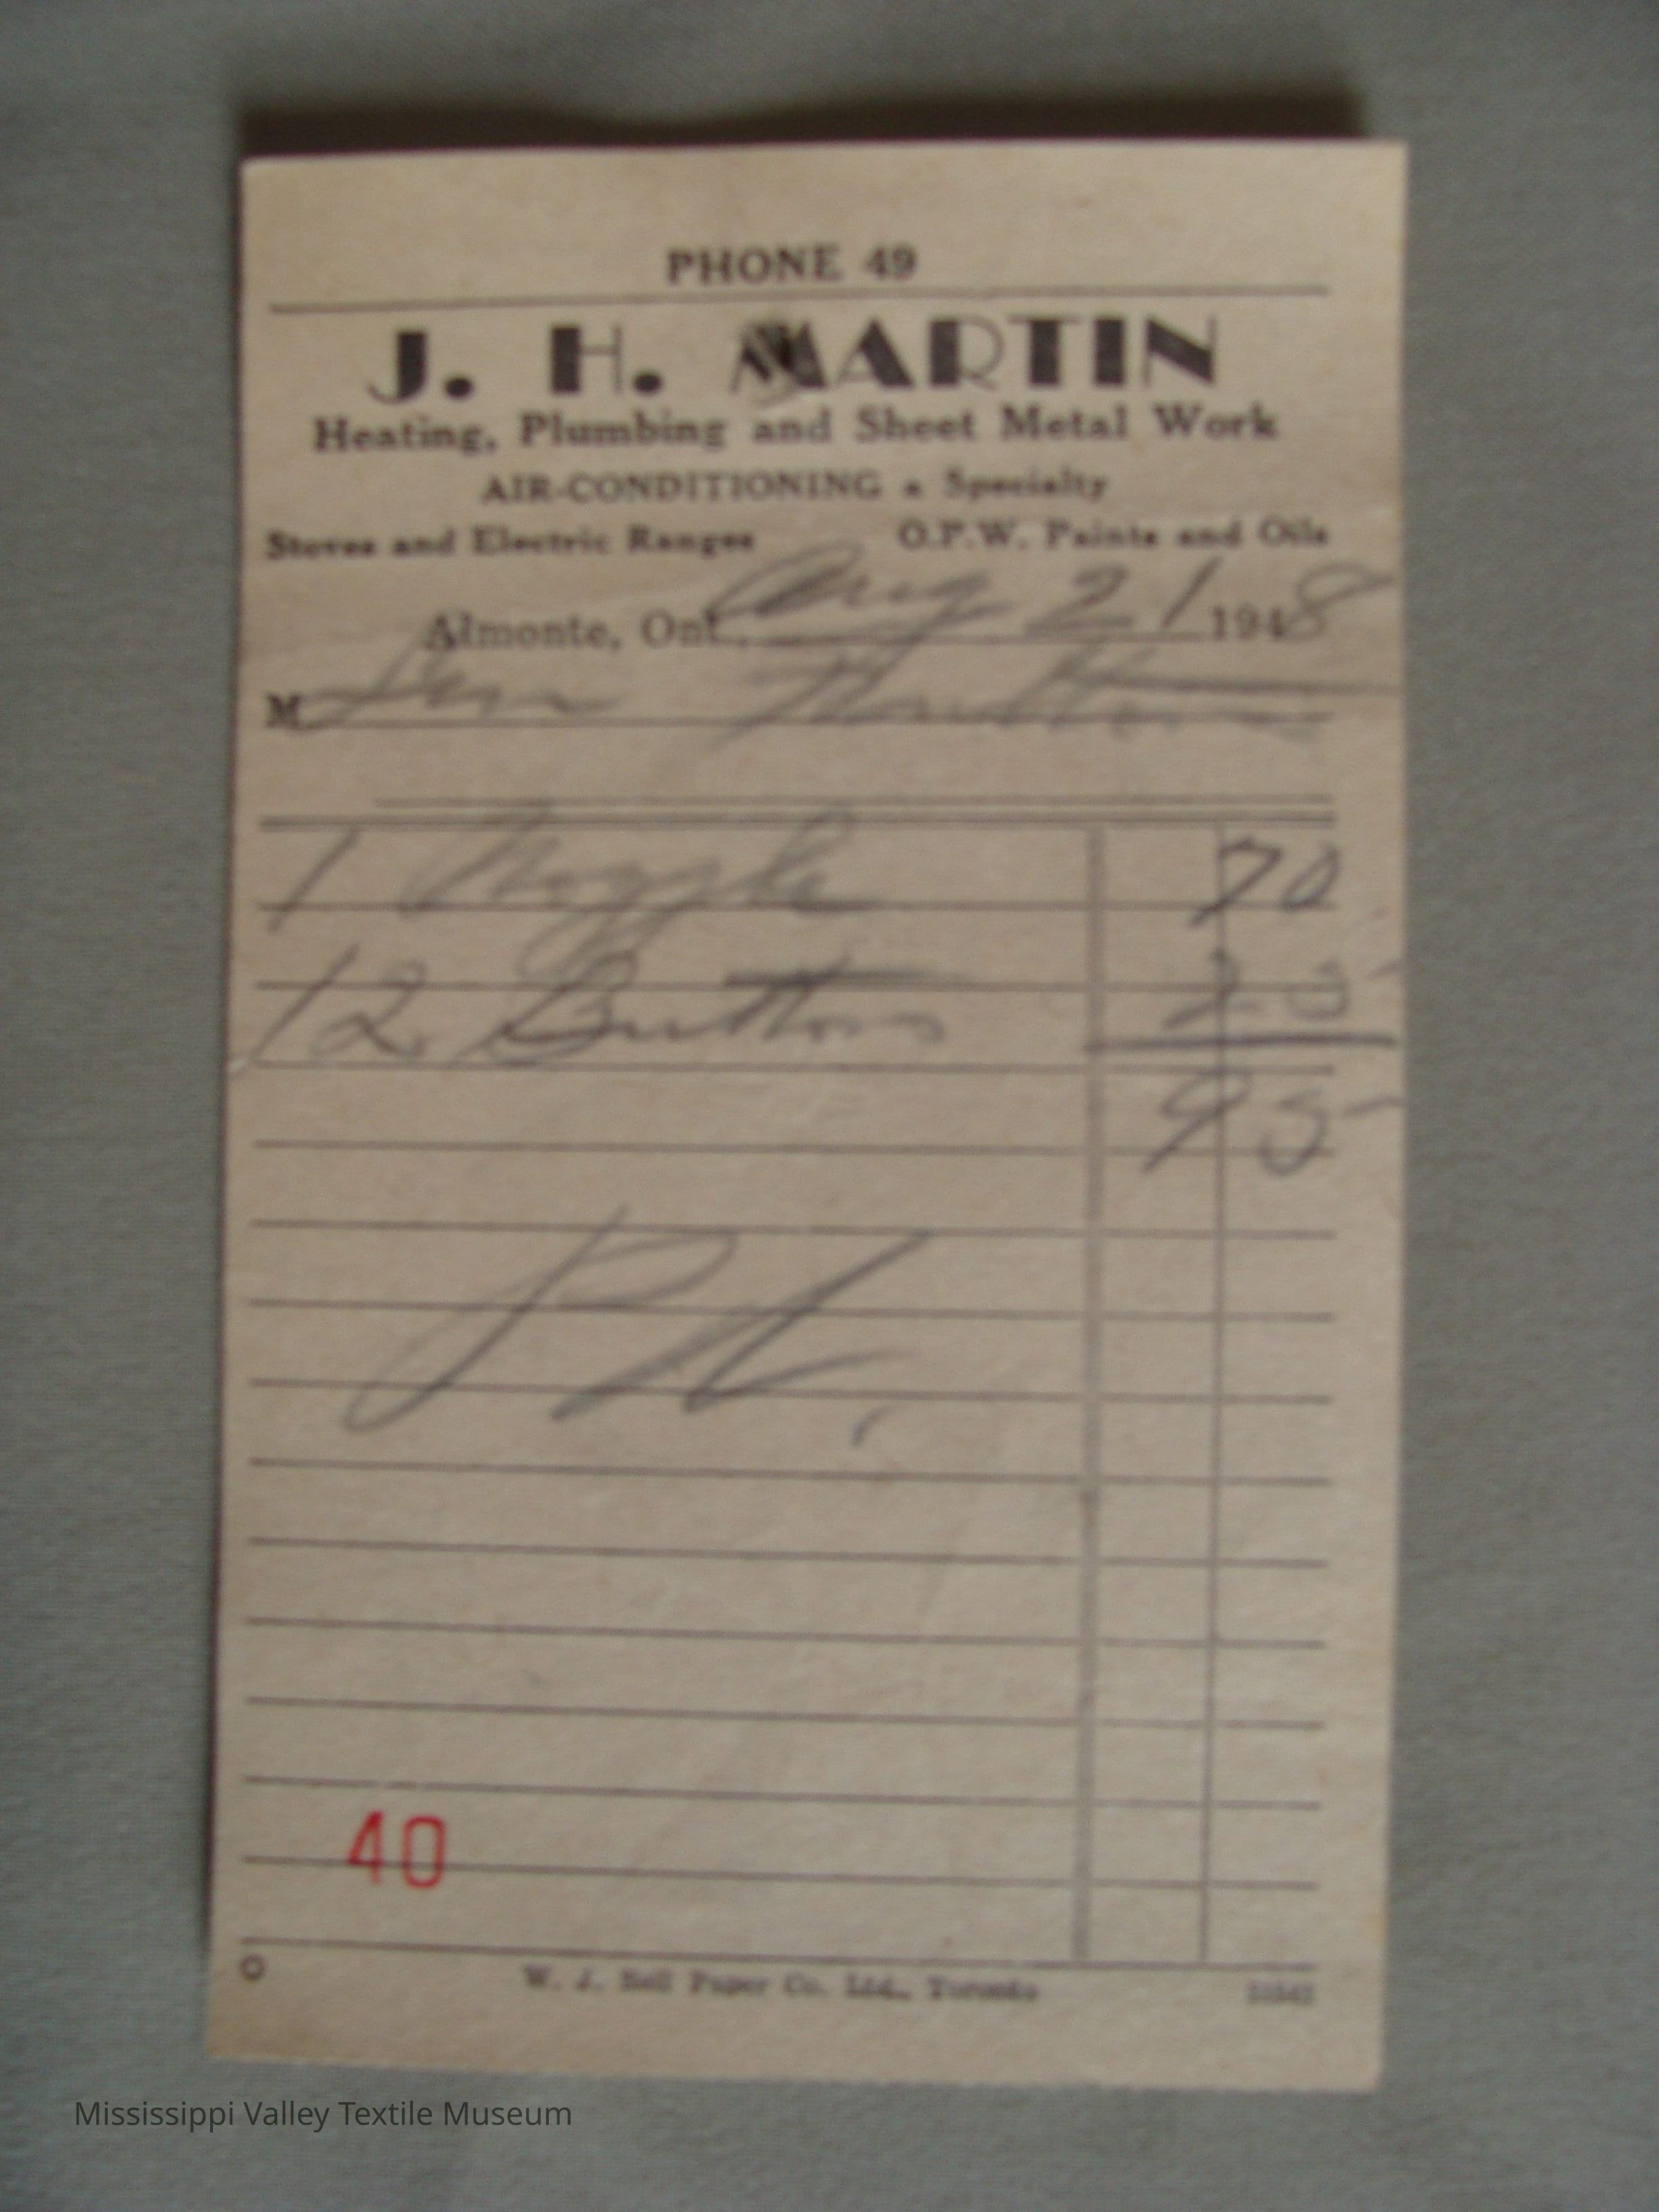 PHONE 49
J. H. MARTIN
Heating, Plumbing and Sheet Metal Work
AIR-CONDITIONING a Specialty
Stoves and Electric Ranges O.P.W. Paints and Oils
Almonte, Ont., Aug 21 1948
M
1 Nozzle 70
12 Buttons 25
95
Pd.
40
W. J. Bell Paper Co. Ltd., Toronto
Mississippi Valley Textile Museum